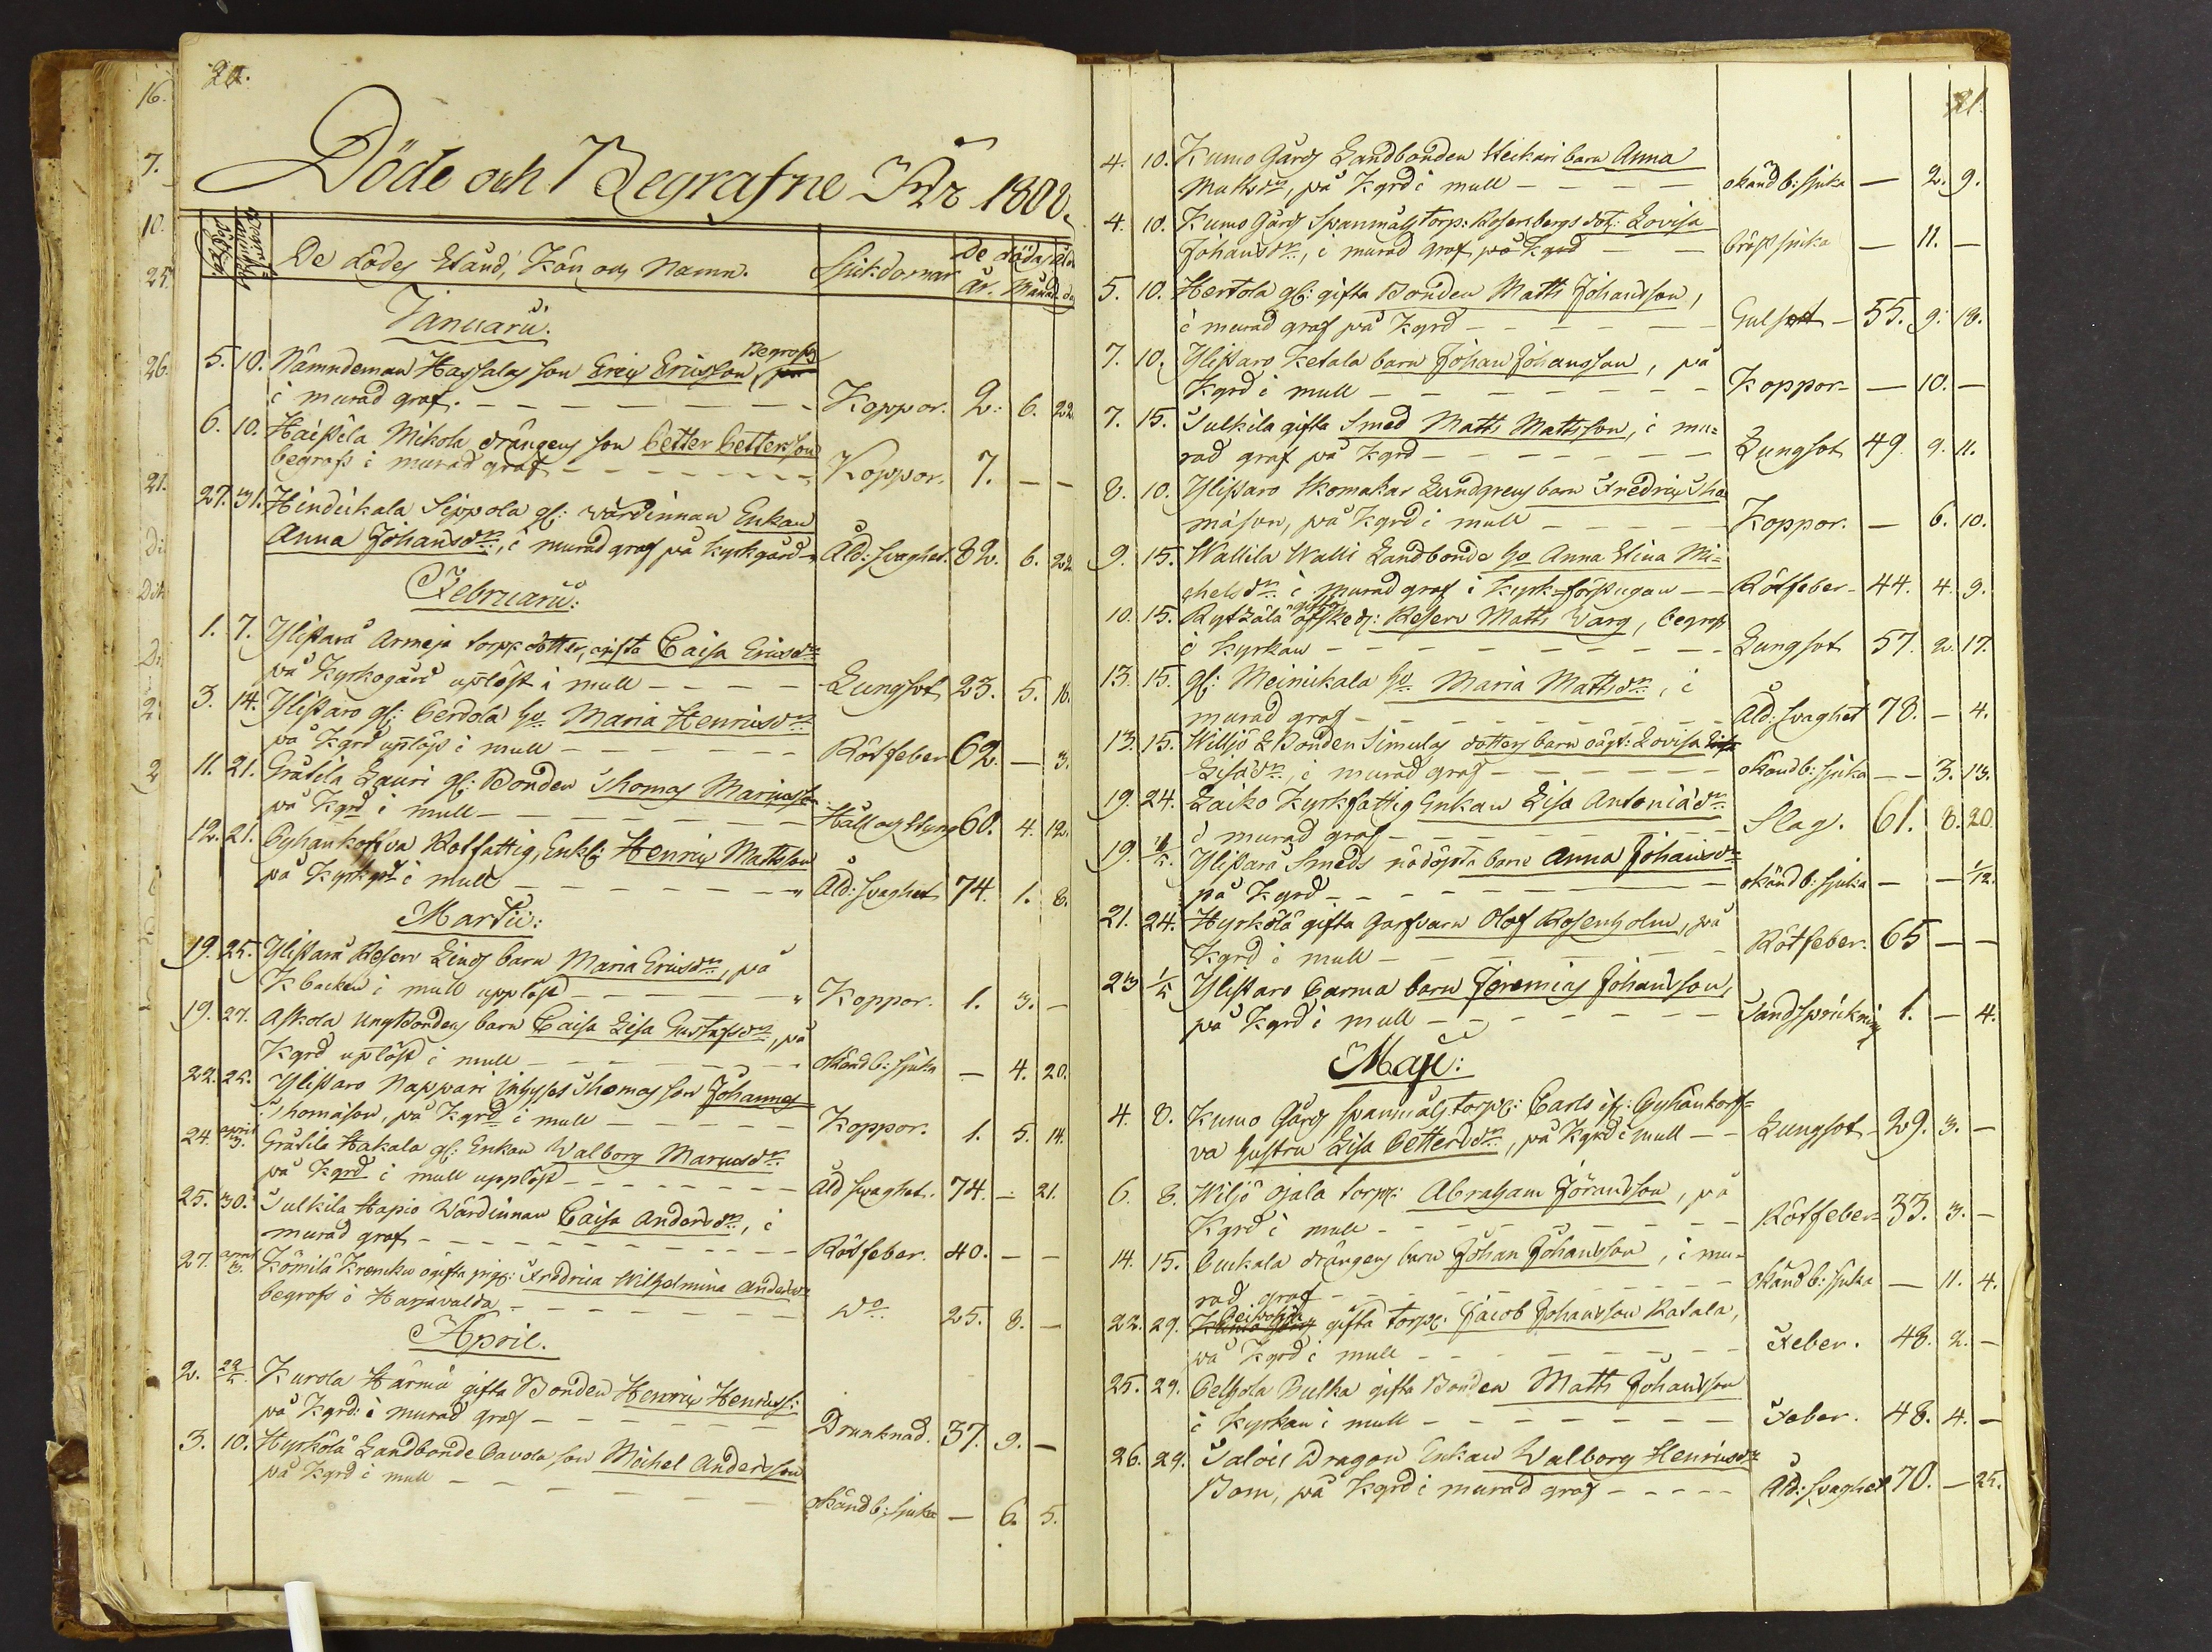 20.
Döde och Begrafne År 1808.
De dödes Stånd, Kön och Namn.
Sjukdomar
De dödas ålder
år. Månad. da
Januarii.
5. 10. Nämndeman Hassalas son Eric Ericsson, Begrofs
i murad graf. Koppor. 2. 6. 22.
6. 10. Haistila Mikola drängens son Petter Pettersson
begrofs i murad graf Koppor. 7. — —
27. 31. Hindikala Seppola gl: värdinnan Enkan
Anna Johansdr:, i murad graf på kyrkgård Åld: svaghet. 82. 6. 22.
Februarii:
1. 7. Ylistarå Armeja torp: dotter, gifta Caisa Ericsdr
på kyrkogård uplöst i mull Lungsot 23. 5. 16.
3. 14. Ylistaro gl: Perdola hu Maria Henricsdr
på Kgrd uplöst i mull Rötfeber 62. — 3.
11. 21. Gråtila Lauri gl: Bonden Thomas
på Kgrd i mull Håll och Styng 60. 4. 12.
12. 21. Pyhänkorfva Rotfattig, Enkl: Henric Mattsson
på Kyrkgrd i mull Åld: svaghet 74. 1. 8.
Martii:
19. 25. Ylistarå Reserv Linds barn Maria Ericsdr, på
K backen i mull upplöst Koppor. 1. 3. —
19. 27. Askola Ung Bondens barn Caisa Lisa Gustafsdr, på
Kgrd uplöst i mull okänd b: sjuka — 4. 20.
22. 25. Ylistaro Nappari Inhyses Thomas son Johannes
Thomasson, på Kgrd i mull Koppor. 1. 5. 14.
24. april 3. Gråtila Hakala gl: Enkan Walborg
på Kgrd i mull upplöst Åld svaghet. 74. — 21.
25. 30. Sulkila Hapio Wärdinnan Caisa Andersdr, i
murad graf Rötfeber. 40. — —
27. april 3. Kömilä Krencku ogifta pig: Fredrica Wilhelmina Andersdr
begrofs i Harjavalda Do 25. 8. —
April.
2. 22/5. Kurola Härmä gifta Bonden Henric Henricss:
på Kgrd: i murad graf Drunknad. 37. 9. —
3. 10. Hyrkölä Landbonde Pavola son Michel Andersson
på Kgrd i mull okänd b: sjuka — 6. 5.
21.
4. 10. Kumo Gårds Landbonden Heikari barn Anna
Mattsdr, på Kgrd i mull okänd b: sjuka — 2. 9.
4. 10. Kumo Gårds Spanmåls torp: Rosenbergs dot: Lovisa
Johansdr, i murad graf på Kgrd bröst sjuka — 11. —
5. 10. Hertola gl: gifta Bonden Matts Johansson,
i murad graf på Kgrd Gulsot 55. 9. 18.
7. 10. Ylistaro Ketala barn Johan Johansson, på
Kgrd i mull Koppor — 10. —
7. 15. Sulkila gifta Smed Matts Mattsson, i mu=
rad graf på Kgrd Lungsot 49. 9. 11.
8. 10. Ylistaro Skomakar Lundgrens barn Fredric Tho
masson, på Kgrd i mull Koppor. — 6. 10.
9. 15. Wallila Walli Landbonde hu Anna Stina Mi=
chelsdr i murad graf i Kyrk-förstugan Rötfeber 44. 4. 9.
10. 15. gifta afsked: Reserv Matts Warg, begrofs
i Kyrkan Lungsot 57. 2. 17.
13. 15. gl: Meinikala hu Maria Mattsdr, i
murad graf Åld: svaghet 78. — 4.
13. 15. Willjö L Bonden Simulas dotters barn oägt: Lovisa
Lisädr, i murad graf okänd b: sjuka — 3. 13.
19. 24. Laiko Kyrkfattig Enkan Lisa
i murad graf Slag. 61. 8. 20.
19. Ylistarå Smeds nödöpta barn Anna Johansdr
på Kgrd okänd b: sjuka — — 1/12.
21. 24. Hyrkölä gifta Garfvarn Olof Rosenholm, på
Kgrd i mull Rötfeber. 65 — —
23 1/5 Ylistaro Parma barn Jeremias Johansson,
på Kgrd i mull Tandsprickning 1. — 4.
Maji:
4. 8. Kumo Gårds spanmåls torp: Carls Pyhänkorf=
va hustru Lisa Pettersdr, på Kgrd i mull Lungsot 29. 3. —
6. 8. Wiljö Ojala torp: Abraham Göransson, på
Kgrd i mull Rötfeber 33. 3. —
14. 15. Puckala drängens barn Johan Johansson, i mu-
rad graf okänd b: sjuka — 11. 4.
22. 29. gifta torp: Jacob Johansson Ratala,
på Kgrd i mull Feber. 48. 2. —
25. 29. Pelhola Pulka gifta Bonden Matts Johansson
i Kyrkan i mull Feber. 48. 4. —
26. 29. Talois Dragon Enkan Walborg Henricsdr
Bom, på Kgrd i murad graf Åld: svaghet 70. — 25.